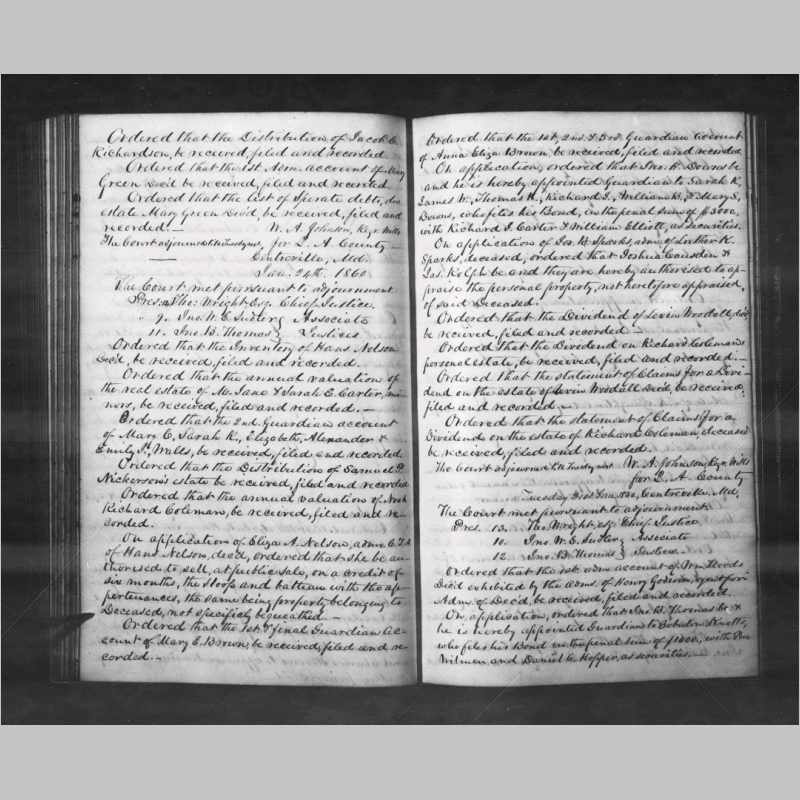 Ordered that the Distribution of Jacob C.
Richardson, be received, filed and recorded
Ordered that the 1st. Adm. account of Mary
Green Dec'd be received, filed and recorded
Ordered that the list of Sperate debts, due
estate Mary Green Dec'd, be received, filed and
recorded. — W. A. Johnson, Reg. Wills
The Court adjourned till Tuesday next, for Q. A. County —
Centreville, Md.
Jan. 24th. 1860.
The Court met pursuant to adjournment
Present Tho. Wright Esq. Chief Justice.
" 9. Jno. W. E. Sudler } Associate
11. Jno. B. Thomas } Justices
Ordered that the Inventory of Hans Nelson
Dec'd, be received, filed and recorded.
Ordered that the annual valuation of
the real estate of M. Jane & Sarah E. Carter, mi-
nors, be received, filed and recorded. —
Ordered that the 2nd. Guardian account
of Mary C, Sarah R., Elizabeth, Alexander &
Emily H. Wells, be received, filed and recorded
Ordered that the Distribution of Samuel P.
Nickerson's estate be received, filed and recorded
Ordered that the annual valuation of
Richard Coleman, be received, filed and re-
corded.
On application of Eliza A. Nelson, admx. C.T.A
of Hans Nelson, dec'd, ordered that she be au-
thorised to sell, at public sale, on a credit of
six months, the Sloop and batteau with the ap-
pertenances, the same being property belonging to
Deceased, not specificly bequeathed. —
Ordered that the 1st. & final Guardian ac-
count of Mary E. Brown, be received, filed and re-
corded. —
Ordered that the 1st, 2nd. & 3rd. Guardian account
of Anna Eliza Brown, be received, filed and recorded
On application, ordered that Jno. H. Downs be
and he is hereby appointed Guardian to Sarah R,
James W., Thomas H., Richard I., William H., & Mary S,
Downs, who files his Bond, in the penal sum of $3000,
with Richard I. Carter & William Elliott, as securities.
On application of Jos. H. Sparks, adm. of Luther K.
Sparks, deceased, ordered that Joshua Cousden &
Jas. Rolph be and they are hereby authorised to ap-
praise the personal property, not heretofore appraised,
of said Deceased.
Ordered that the Dividend of Levin Woodall, dec'd
be received, filed and recorded —
Ordered that the Dividend on Richard Coleman's
personal estate, be received, filed and recorded. —
Ordered that the statement of Claims for a Divi-
dend on the estate of Levin Woodall Dec'd, be received,
filed and recorded. —
Ordered that the statement of Claims for a
Dividend on the estate of Richard Coleman, deceased
be received, filed and recorded.
The Court adjourned till Tuesday next W. A. Johnson, Reg. Wills
for Q. A. County
Tuesday 31st Jan. 1860, Centreville, Md.
The Court met pursuant to adjournment
Pres. 13. Tho. Wright, esq. Chief Justice
10. Jno. W. E. Sudler } Associate
12. Jno. B. Thomas } Justices.
Ordered that the 1st. adm account of Wm.
Dec'd exhibited by the adms. of Henry Godwin,
Adm. of Dec'd, be received, filed and recorded.
On application, ordered that Jno. B. Thomas be &
he is hereby appointed Guardian to
who files his Bond in the penal sum of $1000, with
Wilmer and Daniel C. Hopper, as securities. —